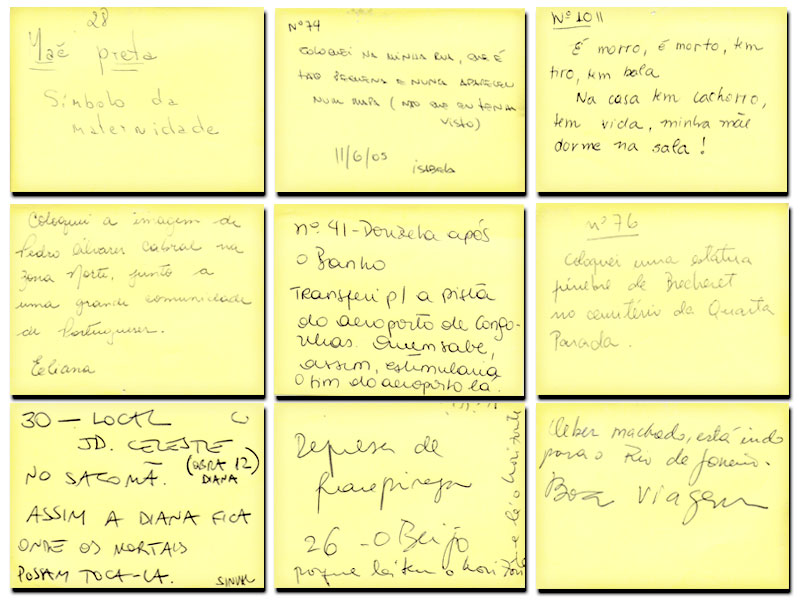 28
Mãe preta
Símbolo da
maternidade
Nº 79
COLOQUEI NA MINHA RUA, QUE É
TÃO PEQUENA E NUNCA APARECEU
NUM MAPA (NÃO QUE EU TENHA
VISTO)
11/6/05
ISABELA
Nº 10 11
É morro, é morto, tem
tiro, tem bala
Na casa tem cachorro,
tem vida, minha mãe
dorme na sala!
Coloquei a imagem de
Pedro Álvares Cabral na
zona Norte, junto a
uma grande comunidade
de Portugueses.
Eliana
nº. 41-Donzela após
o Banho
Transferi p/ a pista
do aeroporto de Congo-
nhas. Quem sabe,
assim, estimularia
o fim do aeroporto lá.
nº 76
Coloquei uma estátua
fúnebre de Brecheret
no cemitério da Quarta
Parada.
30 — LOCAL
JD. CELESTE
(OBRA 12)
DIANA
NO SACOMÃ.
ASSIM A DIANA FICA
ONDE OS MORTAIS
POSSAM TOCA-LA.
SINVAL
Represa de
Guarapiranga
26 - O Beijo
porque lá tem o horizonte
que lá o horizonte
Cleber machado, está indo
para o Rio de Janeiro.
Boa Viagem